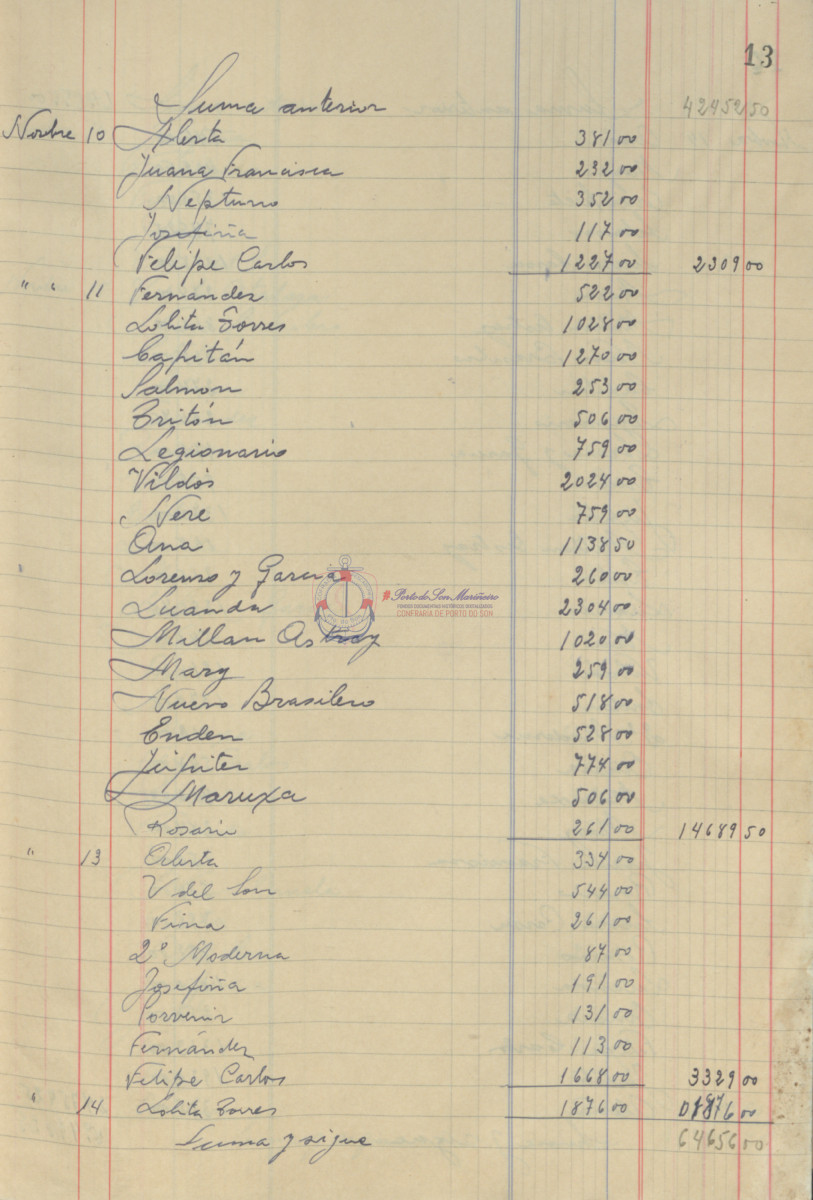 13
Suma anterior 42452 50
Novbre 10 Alerta 381 00
Juana Francisca 232 00
Neptuno 352 00
Josefiña 117 00
Felipe Carlos 1227 00 2309 00
" " 11 Fernández 522 00
Lolita Torres 1028 00
Capitán 1270 00
Salmon 253 00
Tritón 506 00
Legionario 759 00
Vildós 2024 00
Nere 759 00
Ana 1138 50
Lorenzo y Garcia 260 00
Luanda 2304 00
Millan Astray 1020 00
Mary 259 00
Nuevo Brasilero 518 00
Enden 528 00
Júpiter 774 00
Maruxa 506 00
Rosario 261 00 14689 50
" 13 Alerta 334 00
V del Son 544 00
Fina 261 00
2º Moderna 87 00
Josefiña 191 00
Porvenir 131 00
Fernández 113 00
Felipe Carlos 1668 00 3329 00
" 14 Lolita Torres 1876 00 1876 00
Suma y sigue 64656 00
Porto do Son Mariñeiro
CONFRARIA DE PORTO DO SON